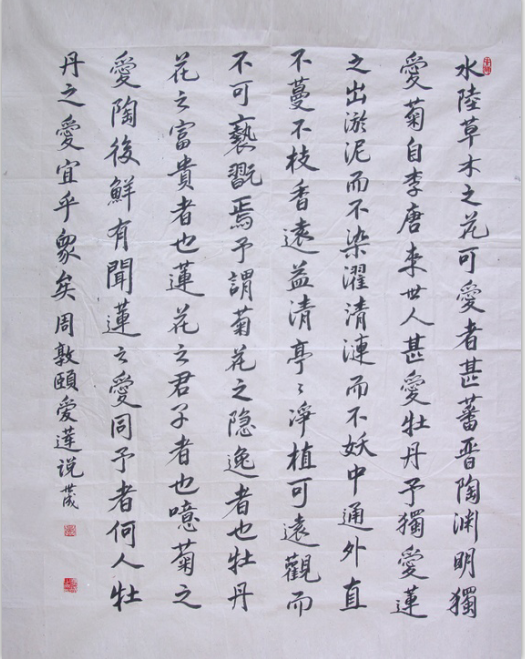 水陸草木之花可愛者甚蕃晋陶渊明獨
愛菊自李唐来世人甚愛牡丹予獨愛蓮
之出淤泥而不染濯清漣而不妖中通外直
不蔓不枝香遠益清亭〻淨植可遠觀而
不可褻翫焉予謂菊花之隐逸者也牡丹
花之富貴者也蓮花之君子者也噫菊之
愛陶後鮮有聞蓮之愛同予者何人牡
丹之愛宜乎衆矣周敦颐爱莲说